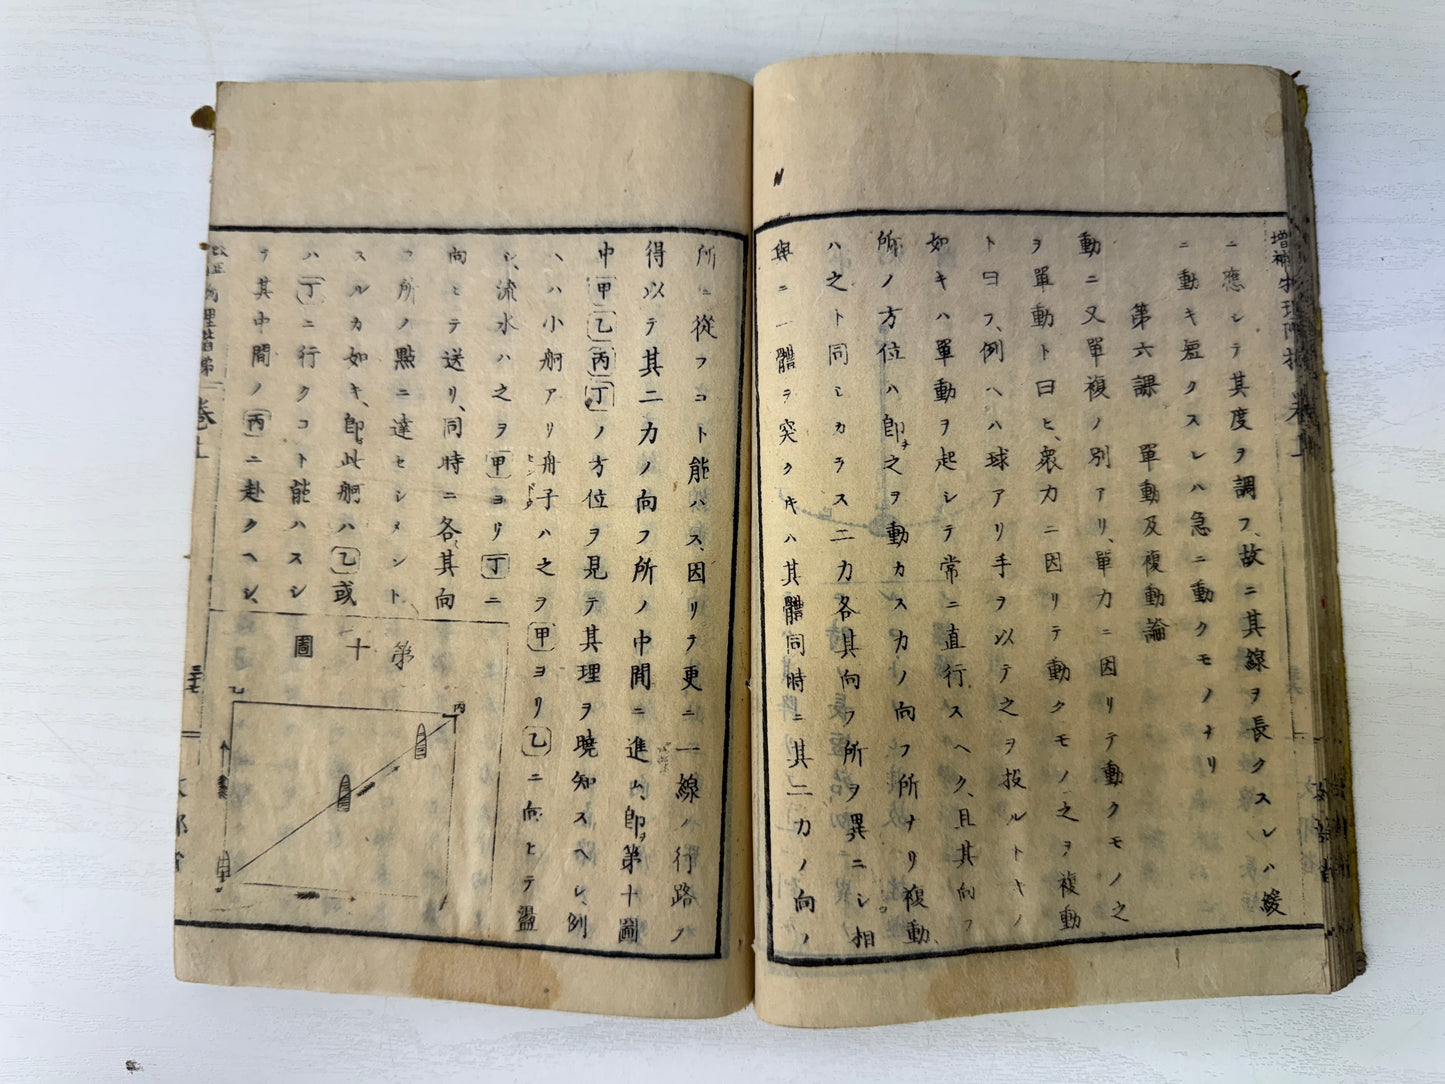 増補
ニ應シテ其度ヲ調フ、故ニ其線ヲ長クスレハ緩
ニ動キ短クスレハ急ニ動クモノナリ
第六課 單動及複動論
動ニ又單複ノ別アリ、單力ニ因リテ動クモノ之
ヲ單動ト曰ヒ、衆力ニ因リテ動クモノ之ヲ複動
ト曰フ、例ヘハ球アリ手ヲ以テ之ヲ投ルトキノ
如キハ單動ヲ起シテ常ニ直行スヘク、且其向フ
所ノ方位ハ卽チ之ヲ動カス力ノ向フ所ナリ複動
ハ之ト同シカラス二力各其向フ所ヲ異ニシ相
與ニ一體ヲ突クキハ其體同時ニ其二力ノ向ノ
所ニ從フコト能ハス、因リテ更ニ一線ノ行路ヲ
得以テ其二力ノ向フ所ノ中間ニ進ム、卽チ第十圖
中甲乙丙丁ノ方位ヲ見テ其理ヲ曉知スヘシ、例
ヘハ小舸アリ舟子センドウハ之ヲ甲ヨリ乙ニ向ヒテ盪
シ、流水ハ之ヲ甲ヨリ丁ニ
向ヒテ送リ、同時ニ各其向
フ所ノ點ニ達セシメント
スルカ如キ、卽チ此舸ハ乙或
ハ丁ニ行クコト能ハスシ
テ其中間ノ丙ニ赴クヘシ、
第十圖
乙
丙
改正物理階梯
卷上
三十七
文部省